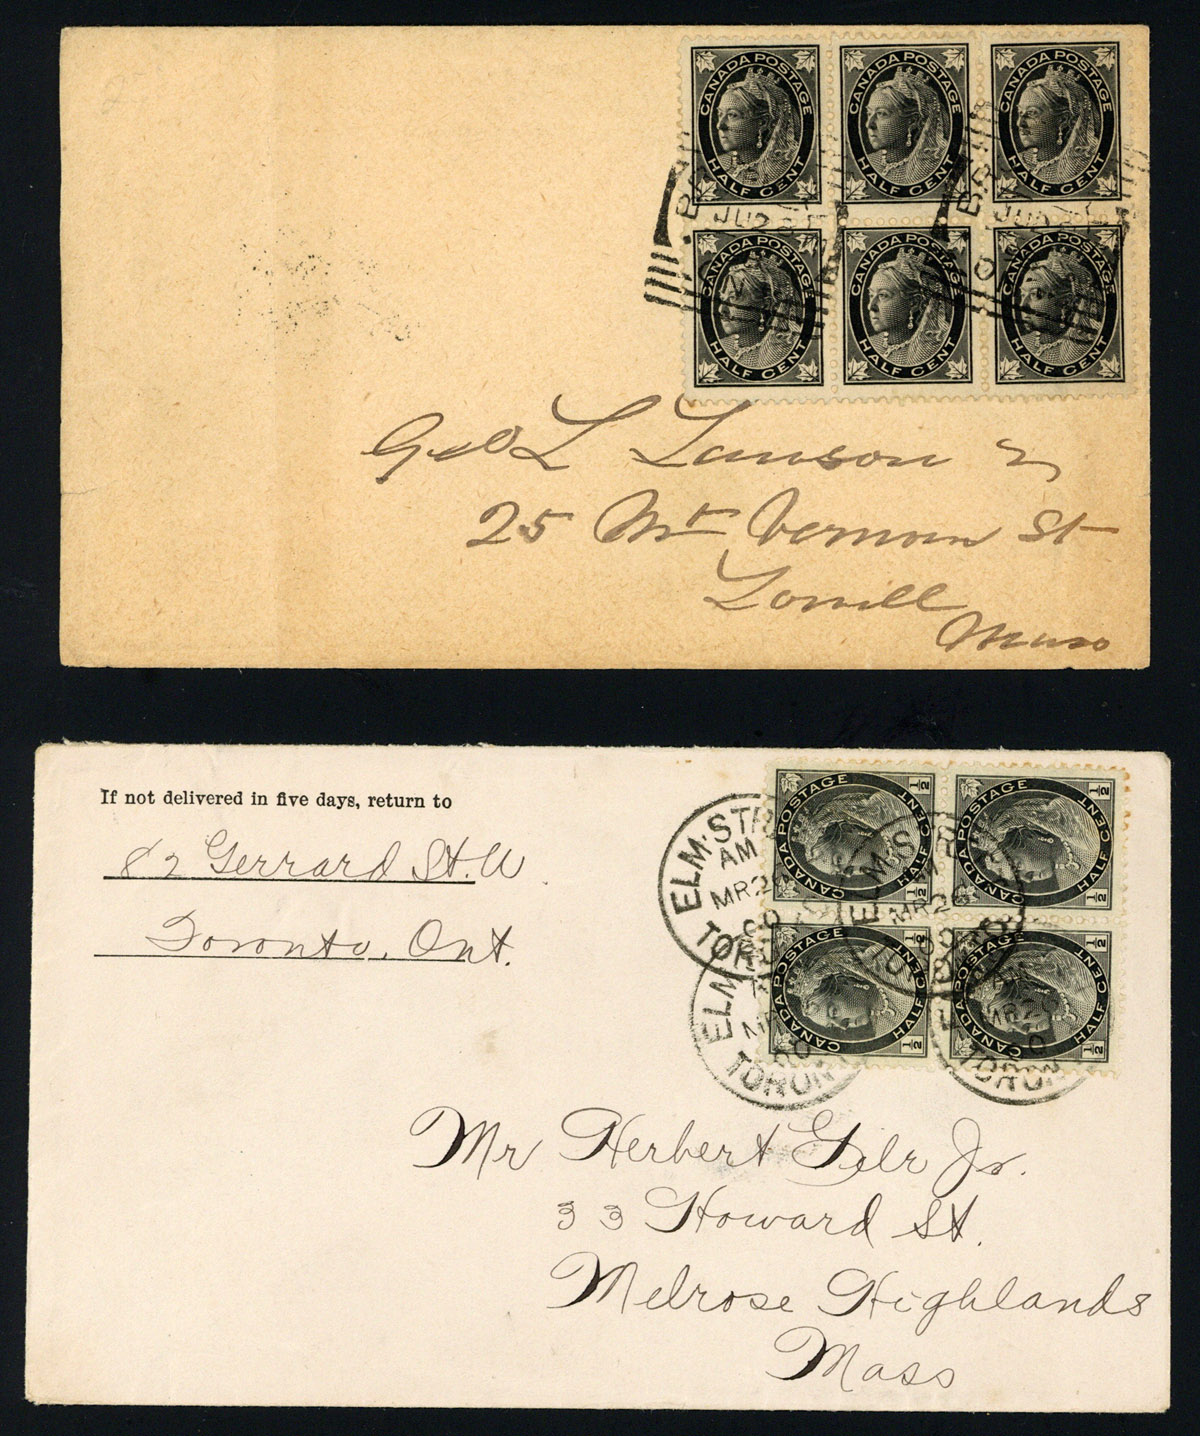 CANADA POSTAGE HALF CENT
CANADA POSTAGE HALF CENT
CANADA POSTAGE HALF CENT
CANADA POSTAGE HALF CENT
CANADA POSTAGE HALF CENT
CANADA POSTAGE HALF CENT
Geo L Lawson
25 Mt Vernon St
Lowell
Mass
If not delivered in five days, return to
82 Gerrard St. W
Toronto, Ont.
CANADA POSTAGE HALF CENT ½ ½
CANADA POSTAGE HALF CENT ½ ½
CANADA POSTAGE HALF CENT ½ ½
CANADA POSTAGE HALF CENT ½ ½
ELM·STR
AM
MR 26
00
TORONTO
Mr Herbert Jr.
33 Howard St.
Melrose Highlands
Mass